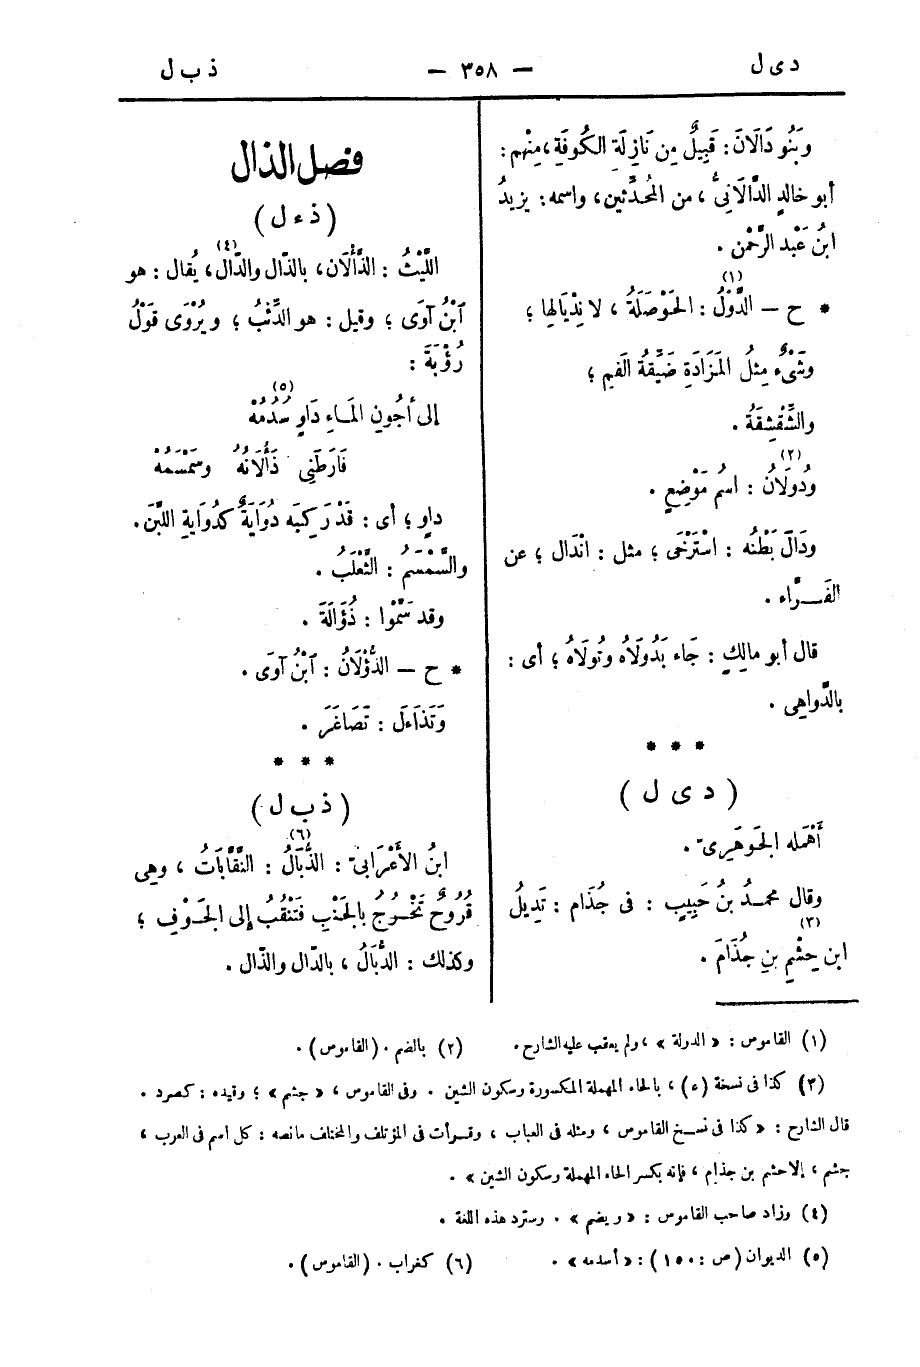 دىل
— ٣٥٨ —
ذبل
وبَنُو دَالَانَ: قَبِيلٌ مِن نَازِلَةِ الكُوفَةِ، مِنْهم:
أبو خالدٍ الدَّالَانِىُّ، من المُحَدِّثين، واسمه: يزيدُ
ابنُ عَبْد الرَّحْمٰن.
* ح — الدَّوَلُ (١): الحَوْصَلَةُ، لانْدِيَالِها؛
وشَىْءٌ مِثلُ المَزَادَةِ ضَيِّقَةُ الفَمِ؛
والشِّقْشِقَةُ.
ودُولَانُ (٢): اسمُ مَوْضِعٍ.
ودَالَ بَطْنُه: اسْتَرْخَى؛ مثل: انْدَال؛ عن
الفَرَّاء.
قال أبو مالِكٍ: جَاء بَدُولَاهُ وتُولَاهُ؛ أى:
بالدَّواهِى.
* * *
(د ى ل)
أَهْمله الجَوهَرِىّ.
وقال محمدُ بنُ حَبِيبٍ: فى جُذَام: تَدِيلُ
ابن حِشْمِ (٣) بنِ جُذَامَ.
فصل الذال
(ذ ء ل)
اللَّيْثُ: الذَّأْلَان، بالذَّال والدَّال (٤)، يُقال: هو
آبْنُ آوَى؛ وقيل: هو الذِّئبُ؛ ويُرْوَى قَوْلُ
رُؤْبَةَ:
إلى أجُونِ المَاءِ دَاوٍ سُدُمُهْ (٥)
فَارَطَنِى ذَأْلَانُهُ وسَمْسَمُهْ
داوٍ؛ أى: قَدْ رَكِبَه دُوَايَةٌ كدُوَايَةِ اللبَن.
والسَّمْسَمُ: الثَّعْلَبُ.
وقد سَمَّوا: ذُؤَالَةَ.
* ح — الذُّؤْلَانُ: آبْنُ آوَى.
وَتَذَاءَلَ: تَصَاغَرَ.
* * *
(ذ ب ل)
ابنُ الأَعْرَابىّ: الذُّبَالُ (٦): النَّقَّابَاتُ، وهى
قُرُوحٌ تَخْرُجُ بالجَنْبِ فَتَنْقُبُ إلى الجَوْفِ؛
وكذلك: الدُّبَالُ، بالدّال والذّال.
(١) القاموس: «الدولة»، ولم يعقب عليه الشارح. (٢) بالضم. (القاموس).
(٣) كذا فى نسخة (ء)، بالحاء المهملة المكسورة وسكون الشين. وفى القاموس، «جشم»؛ وقيده: كصرد.
قال الشارح: «كذا فى نسخ القاموس، ومثله فى العباب، وقرأت فى المؤتلف والمختلف ما نصه: كل اسم فى العرب،
جشم، إلا حشم بن جذام، فإنه بكسر الحاء المهملة وسكون الشين».
(٤) وزاد صاحب القاموس: «ويضم». وسترد هذه اللغة.
(٥) الديوان (ص: ١٥٠): «أسدمه». (٦) كغراب. (القاموس).